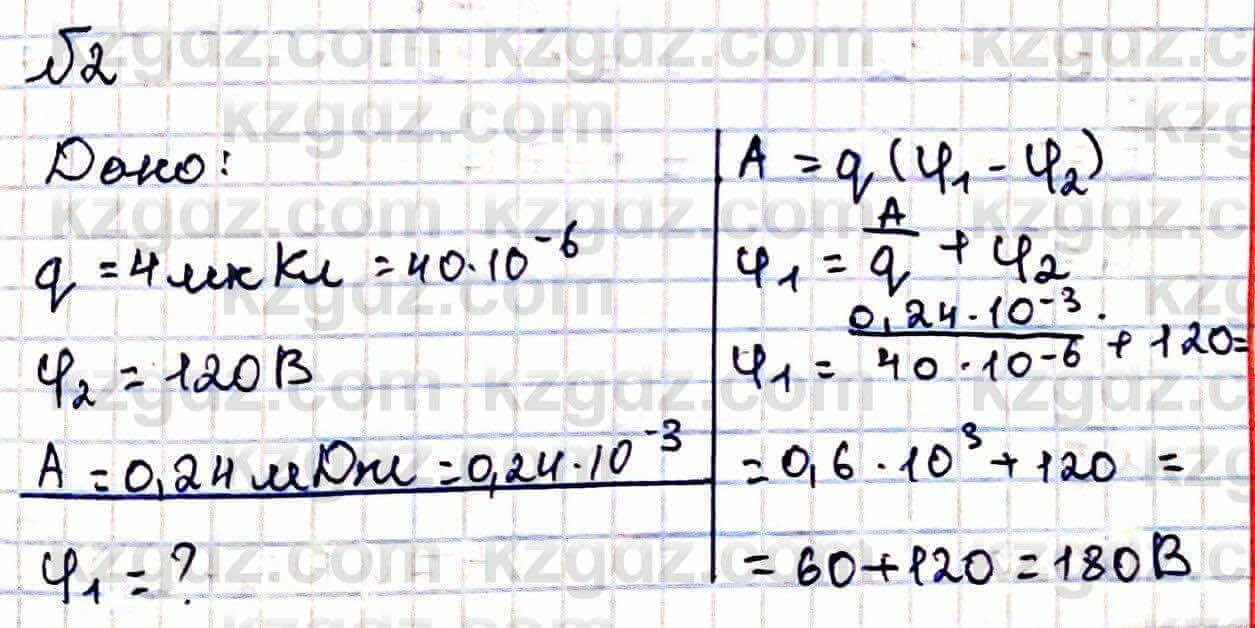 √2
Дано:
q = 4 мкКл = 40·10⁻⁶
φ₂ = 120 В
A = 0,24 мДж = 0,24·10⁻³
φ₁ = ?
A = q (φ₁ - φ₂)
φ₁ = A/q + φ₂
φ₁ = 0,24·10⁻³·/40·10⁻⁶ + 120 =
= 0,6·10³ + 120 =
= 60 + 120 = 180 В
kzgdz.com